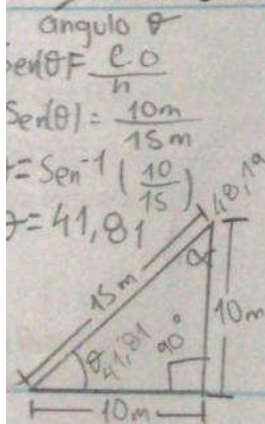 angulo θ
Sen(θ)= C.O
h
Sen(θ)= 10m
15m
= Sen⁻¹ (10
15)
= 41,81
48,1°
α
15m
10m
θ 41,81
90°
10m